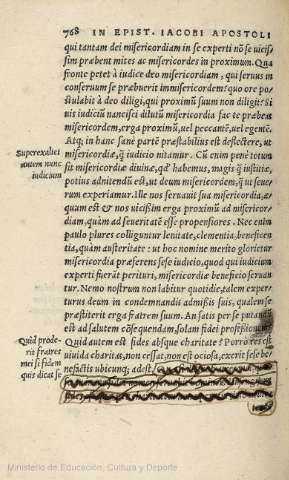 768 IN EPIST. IACOBI APOSTOLI
qui tantam dei misericordiam in se experti nõ se uicis/
sim præbent mites ac misericordes in proximum. Qua
fronte petet à iudice deo misericordiam, qui seruus in
conseruum se præbuerit immisericordem? quo ore po/
stulabit à deo diligi, qui proximũ suum non diligit? Si
uis iudiciũ nancisci dilutũ misericordia fac te præbeas
misericordem, erga proximũ, uel peccantẽ, uel egentẽ.
Atq; in hanc sanè partẽ præstabilius est deflectere, ut
Superexaltet
autem nunc
iudicium
misericordiæ, q̃ iudicio nitamur. Cũ enim penè totum
sit misericordiæ diuinæ, qđ habemus, magis q̃ iustitiæ,
potius adnitendũ est, ut deum misericordem, q̃ ut seue/
rum experiamur. Ille nos seruauit sua misericordia, æ/
quum est & nos uicissim erga proximũ ad misericor/
diam, quàm ad seueritatẽ esse propensiores. Nec enim
paulo plures colliguntur lenitate, clementia, beneficen
tia, quàm austeritate: ut hoc nomine meritò glorietur
misericordia præferens sese iudicio, quod qui iudicium
experti fuerāt perituri, misericordiæ beneficio seruan
tur. Nemo nostrum non labitur quotidie, talem exper/
turus deum in condemnandis admißis suis, qualem se
præstiterit erga fratrem suum. An satis per se putandũ
est ad salutem cõsequendam, solam fidei professionem?
Quid prode
rit fratres
mei si fidem
quis dicat se
Quid autem est fides absque charitate? Porro res est
uiuida charitas, non cessat, non est ociosa, exerit sese be
neficiis ubicunq; adest,
Ministerio de Educación, Cultura y Deporte